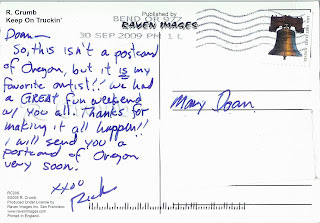 R. Crumb
Keep On Truckin'
Published by
RAVEN IMAGES
BEND OR 977
30 SEP 2009 PM 1 L
Doan—
So, this isn't a postcard
of Oregon, but it is my
favorite artist!! We had
a GREAT fun weekend
w/ you all. Thanks for
making it all happen!!
I will send you a
postcard of Oregon
very soon.
xxoo
Rick
Mary Doan
©2005 R. Crumb
Produced Under License by
Raven Images Inc. San Francisco
www.ravenimages.com
Printed in England